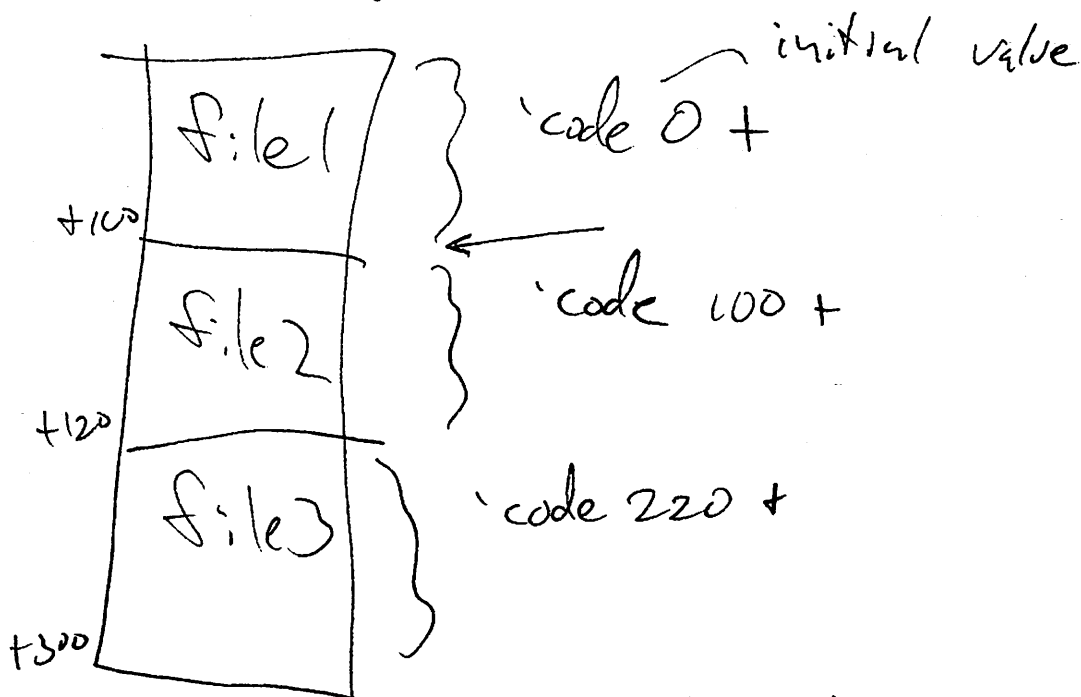 initial value
file1 'code 0 +
+100
file2 'code 100 +
+120
file3 'code 220 +
+300